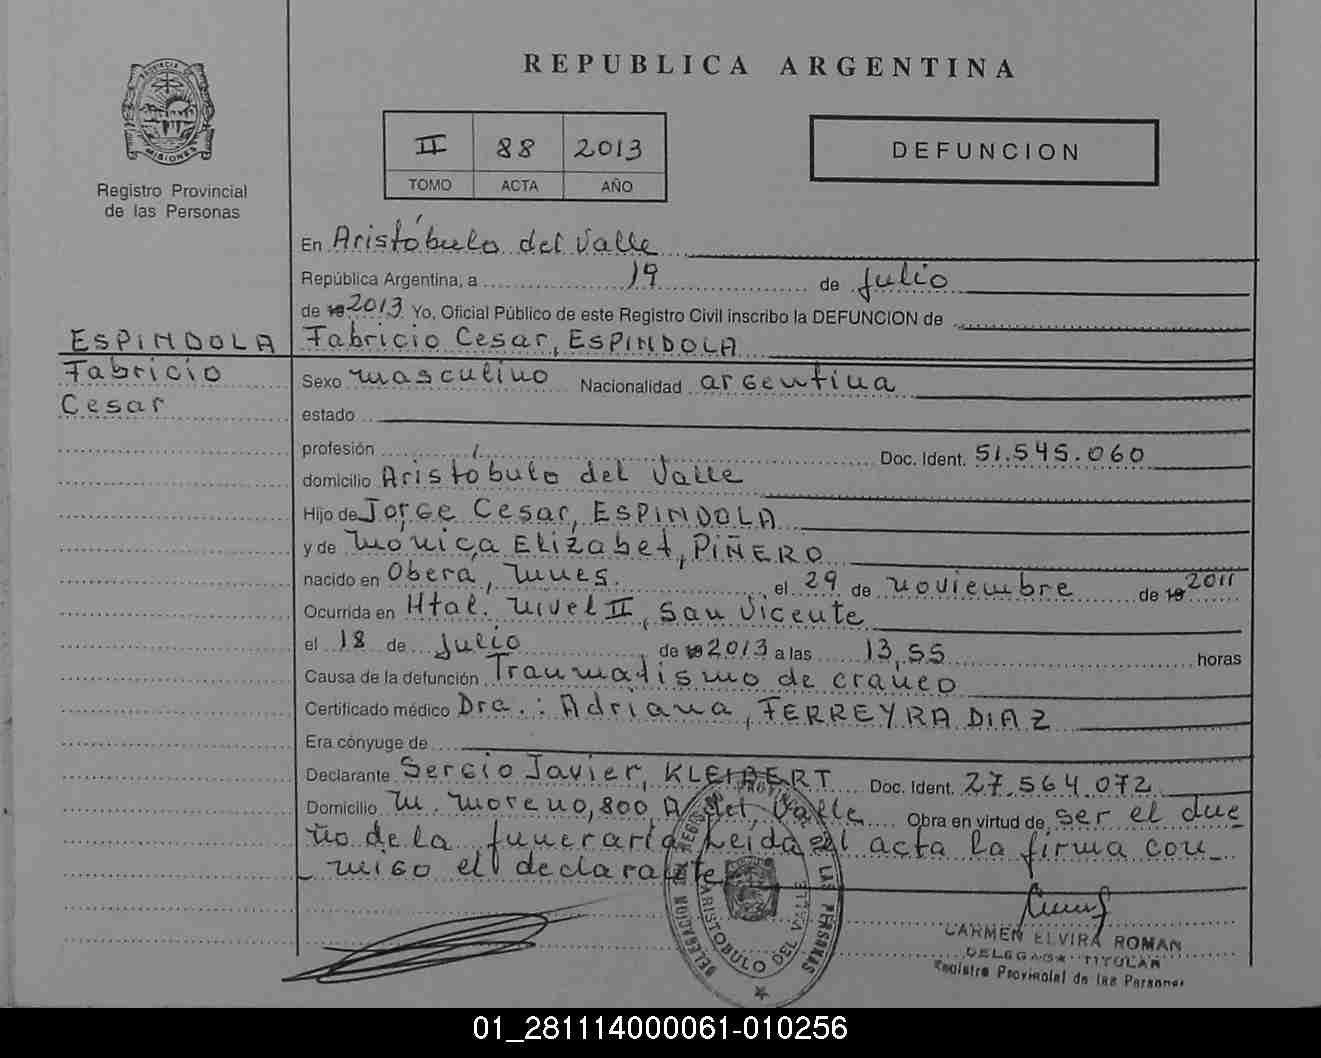 REPUBLICA ARGENTINA
PROVINCIA DE
MISIONES
Registro Provincial
de las Personas
II 88 2013
TOMO ACTA AÑO
DEFUNCION
En Aristóbulo del Valle
República Argentina, a 19 de Julio
de 19 2013 Yo, Oficial Público de este Registro Civil inscribo la DEFUNCION de
ESPINDOLA
Fabricio
Cesar
Fabricio Cesar, ESPINDOLA
Sexo masculino Nacionalidad argentina
estado
profesión Doc. Ident. 51.545.060
domicilio Aristóbulo del Valle
Hijo de Jorge Cesar, ESPINDOLA
y de Monica Elizabet, PIÑERO
nacido en Oberá, Mnes. el 29 de noviembre de 19 2011
Ocurrida en Htal. nivel II, San Vicente
el 18 de Julio de 19 2013 a las 13,55 horas
Causa de la defunción Traumatismo de craneo
Certificado médico Dra.: Adriana, FERREYRA DIAZ
Era cónyuge de
Declarante Sergio Javier, KLEIBERT Doc. Ident. 27.564.072
Domicilio M. Moreno, 800, A. del Valle Obra en virtud de ser el due
ño de la funeraria Leida el acta la firma con_
_migo el declarante
DELEGACION DEL REGISTRO PROVINCIAL DE LAS PERSONAS
ARISTOBULO DEL VALLE
CARMEN ELVIRA ROMAN
DELEGADA TITULAR
Registro Provincial de las Personas
01_281114000061-010256